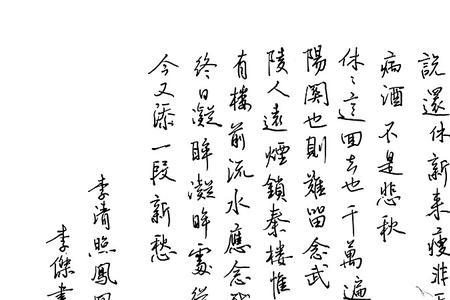 說還休新來瘦非
病酒不是悲秋
休〻這回去也千萬遍
陽關也則難留念武
陵人遠煙鎖秦樓惟
有樓前流水應念
終日凝眸凝眸處從
今又添一段新愁
李清照鳳
李傑書